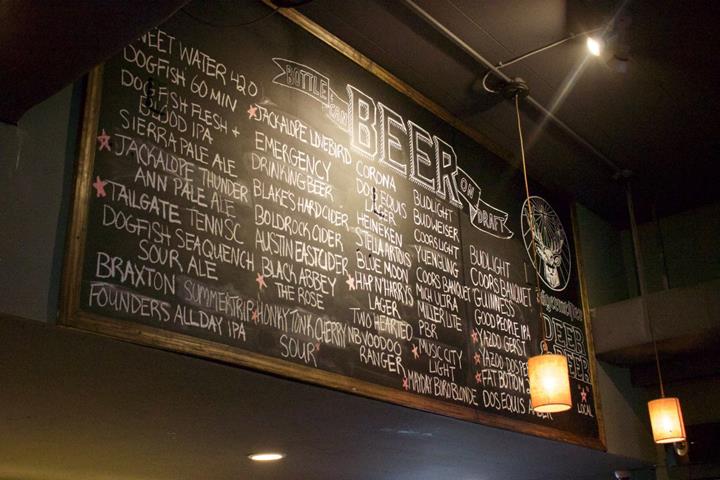 BOTTLE & CAN
BEER
ON
DRAFT
SWEET WATER 420
DOGFISH 60 MIN
DOGFISH FLESH +
BLOOD IPA
SIERRA PALE ALE
JACKALOPE THUNDER
ANN PALE ALE
TAILGATE TENN SC
DOGFISH SEAQUENCH
SOUR ALE
BRAXTON SUMMERTRIP
FOUNDERS ALL DAY IPA
JACKALOPE LOVEBIRD
EMERGENCY
DRINKING BEER
BLAKE'S HARD CIDER
BOLDROCK CIDER
AUSTIN EASTCIDER
BLACK ABBEY
THE ROSE
HONKY TONK CHERRY
SOUR
CORONA
DOS EQUIS
HEINEKEN
STELLA ARTOIS
BLUE MOON
HAP N HARRYS
LAGER
TWO HEARTED
NB VOODOO
RANGER
BUDLIGHT
BUDWEISER
COORSLIGHT
YUENGLING
COORS BANQUET
MICH ULTRA
MILLER LITE
PBR
MUSIC CITY
LIGHT
MAYDAY BORO BLONDE
BUDLIGHT
COORS BANQUET
GUINNESS
GOOD PEOPLE IPA
YAZOO GERST
YAZOO DOS PER
FAT BOTTOM
DOS EQUIS
DEER
BEER
LOCAL